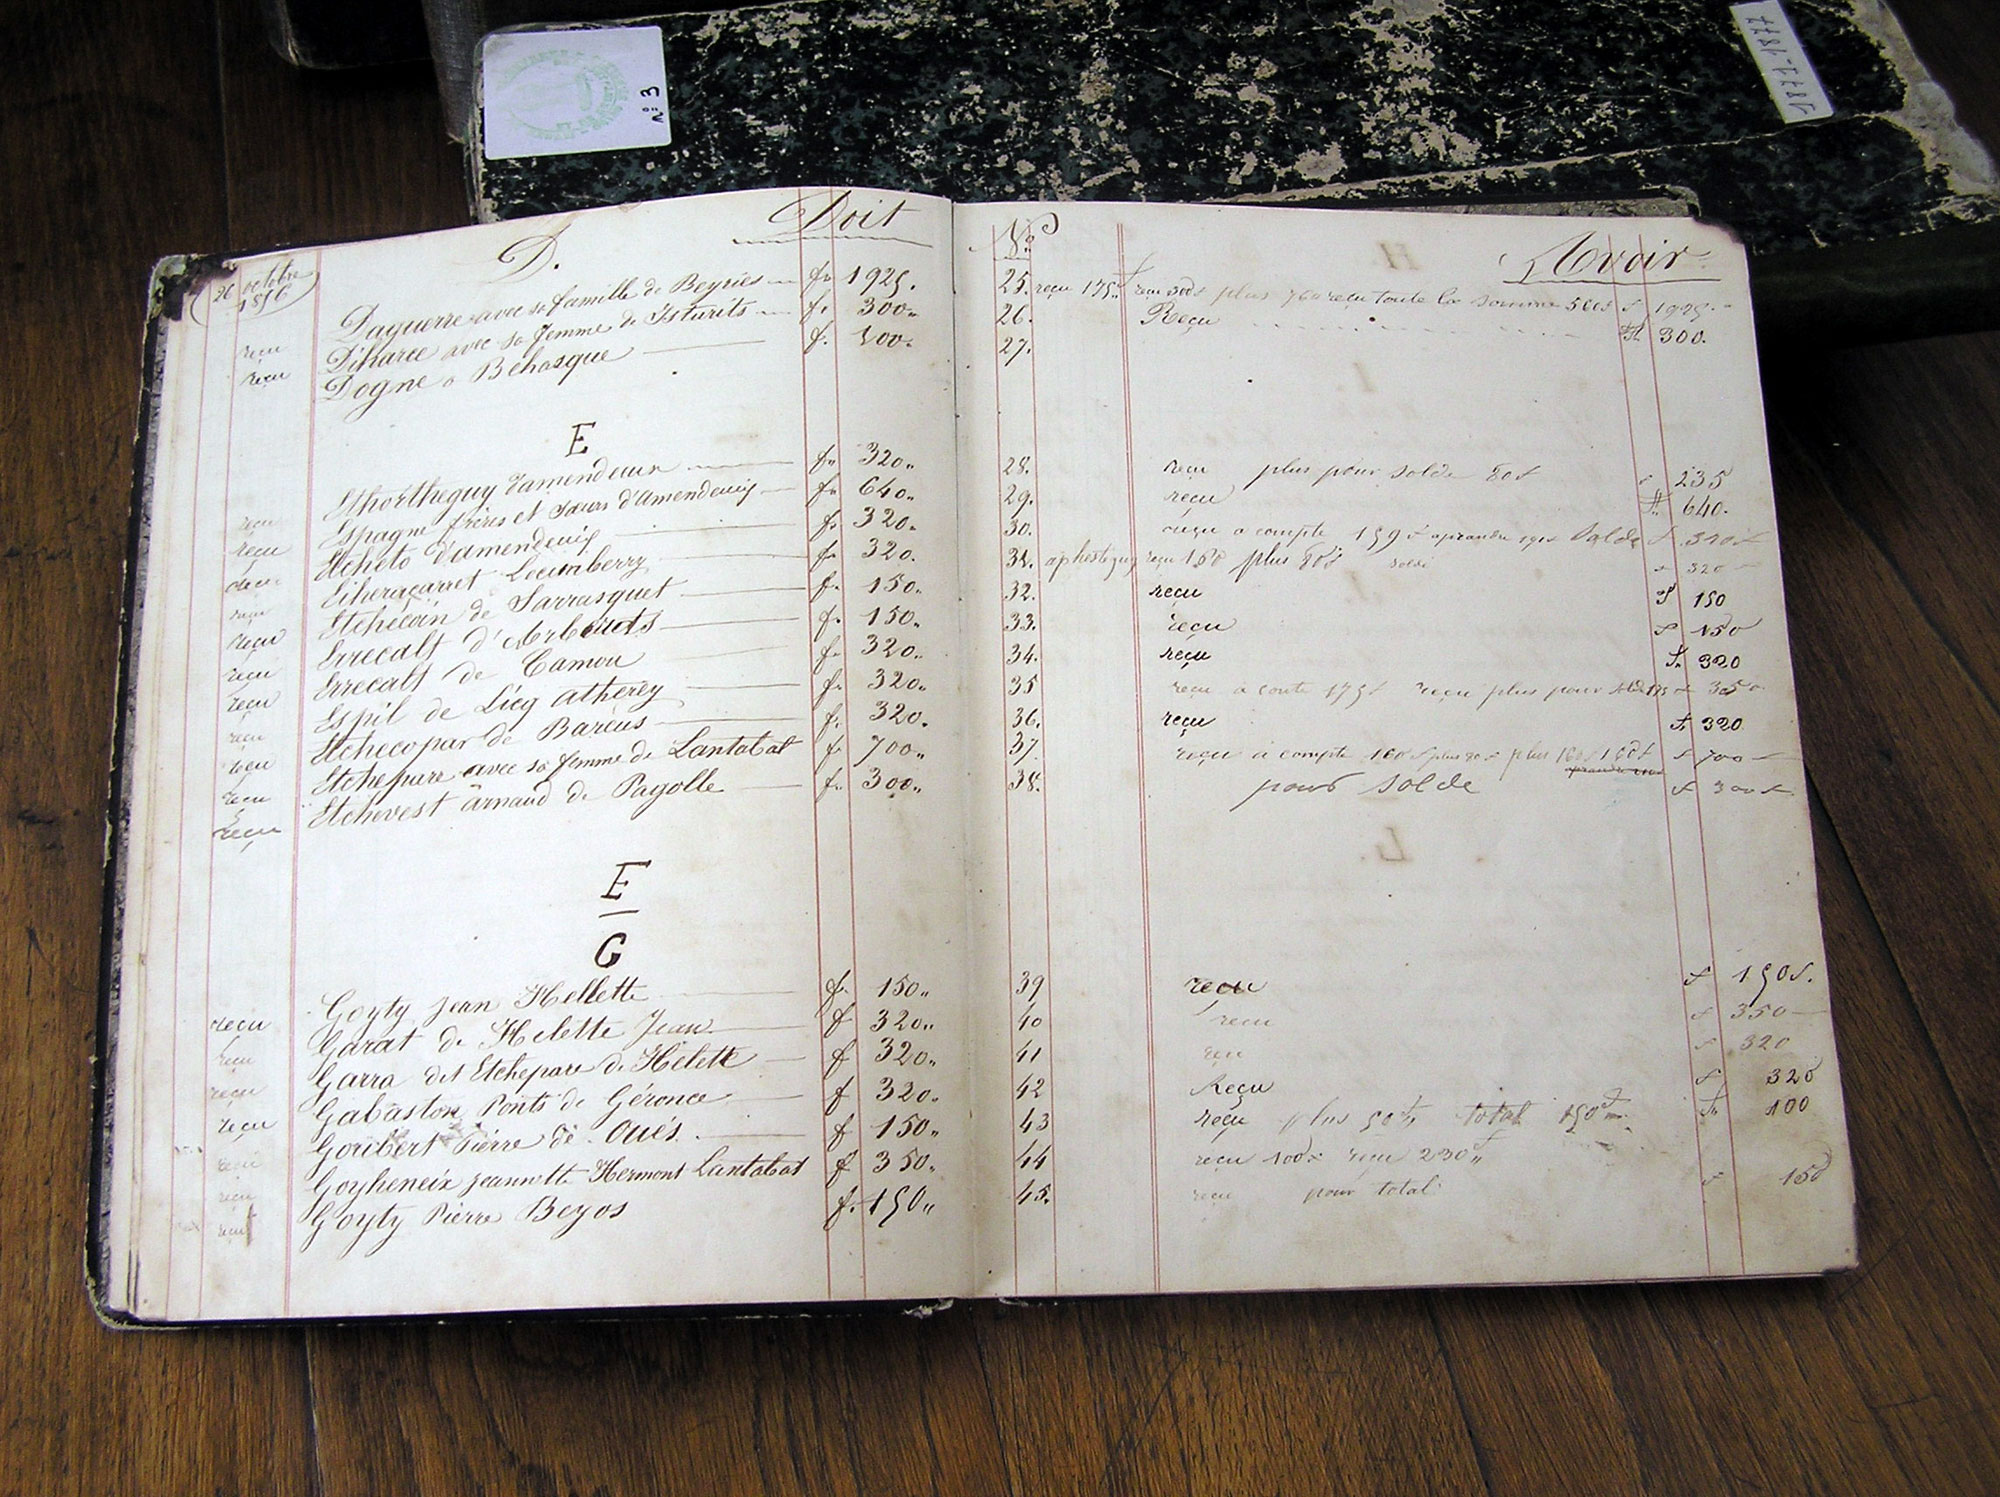 Nº 3
1877-1877
D. Doit
26 octobre 1876
Daguerre avec sa famille de Beyries fr 1925.
reçu Diharce avec sa femme de Isturits f. 300
reçu Dogne a Behasque f. 100
E
Ethortheguy d'amendeuix fr 320
reçu Espagne frères et sœurs d'Amendeuix fr 640
reçu Etcheto d'amendeuix fr 320
reçu Eiheraçarret Lecumberry fr 320.
reçu Etchicoin de Sarrasquet f. 150
reçu Errecalt d'Arberats f. 150
reçu Errecalt de Camou f. 320
reçu Espil de Licq Atherey f. 320
reçu Etchecopar de Barcus f. 320
reçu Etchepare avec sa femme de Lantabat fr 700
reçu Etchevest arnaud de Pagolle f. 300
reçu
E
G
Goyty Jean Hellette f. 150
reçu Garat de Helette Jean f 320
reçu Garra dit Etchepare de Helette f 320
reçu Gabaston Ponts de Géronce f 320
reçu Gouibert Pierre de Oués f 150
reçu Goyheneix jeannette Hermont Lantabat f 350
reçu Goyty Pierre Beyos f. 150
reçu
Nº Avoir
25. reçu 175 reçu 300 plus reçu toute la somme f 1925
26. Reçu fr 300.
27.
28. reçu plus pour solde 80f 235
29. reçu fr 640.
30. reçu a compte solde f 320
31. reçu 160 plus 80f solde 320
32. reçu f 150
33. reçu f 150
34. reçu f. 320
35 reçu à conte 175f reçu plus pour solde 175 350
36. reçu f. 320
37 reçu à compte 160f plus 80f plus f 700
38. pour solde f 300
39 reçu f 150f.
40 reçu f 350
41 reçu f 320
42 Reçu f 320
43 reçu plus 50f total 150f fr 100
44 reçu 100f reçu 230f
45. reçu pour total f 150